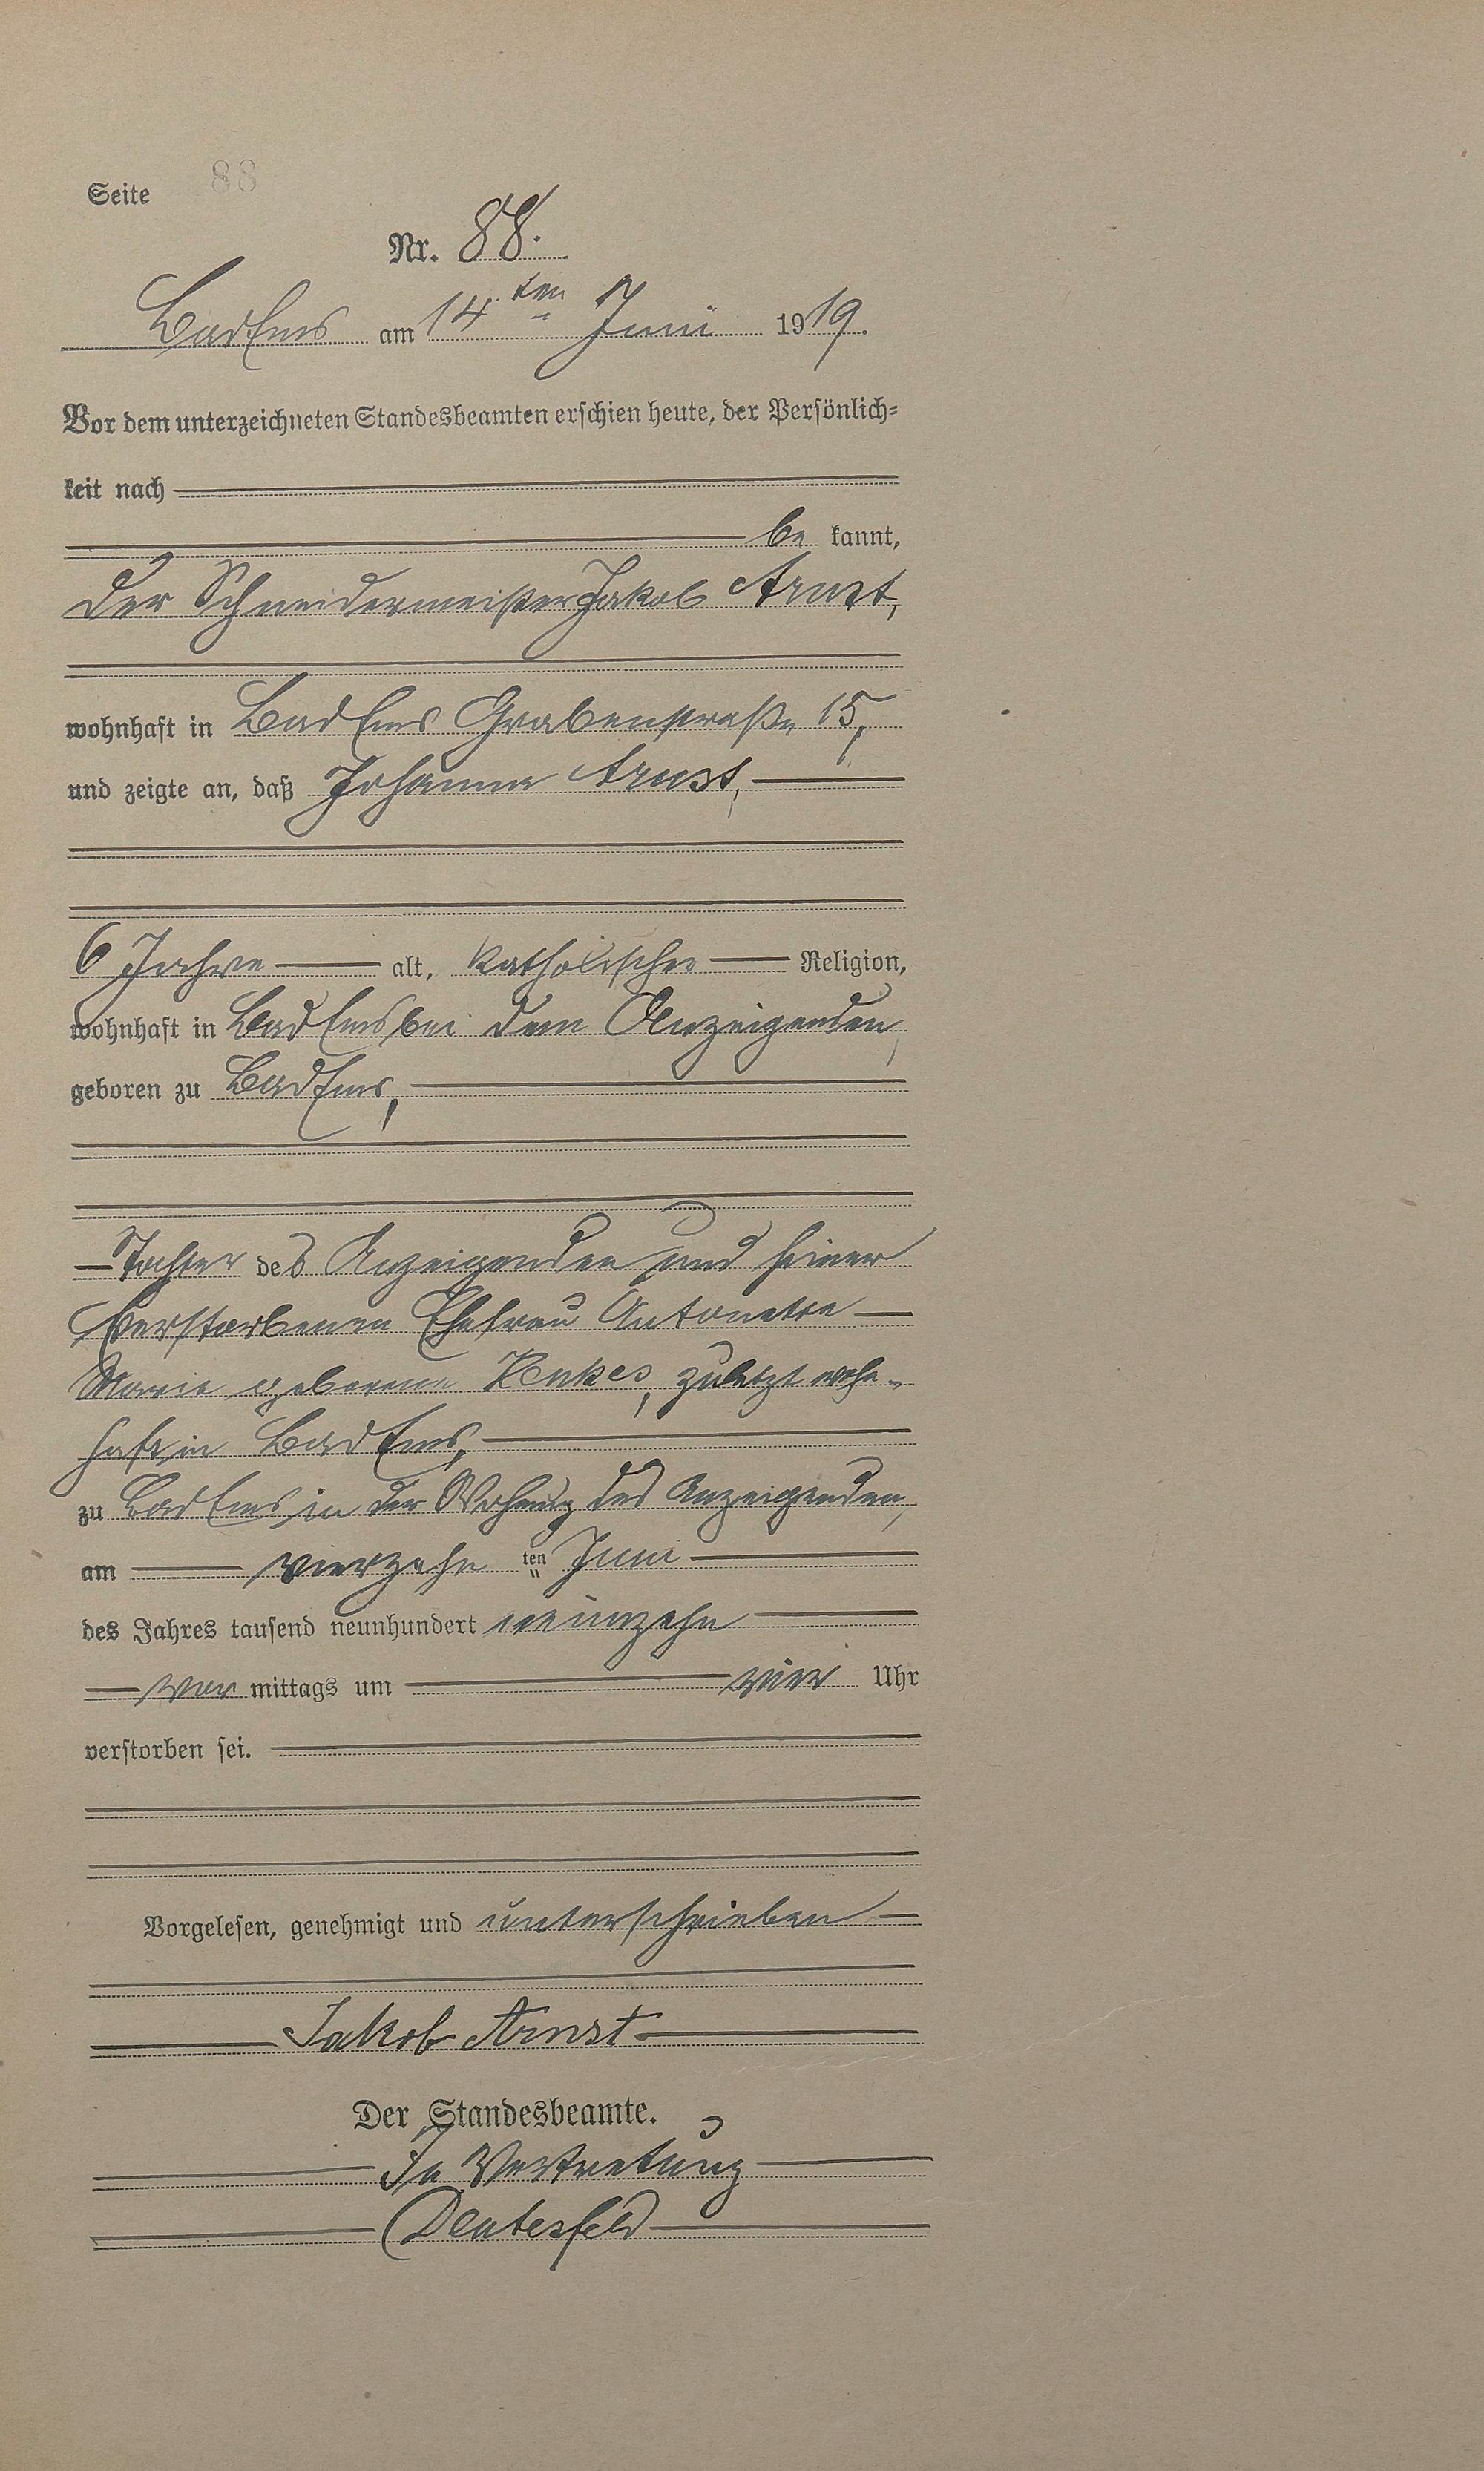 Seite 88
Nr. 88.
Bad Ems am 14ten Juni 1919.
Vor dem unterzeichneten Standesbeamten erschien heute, der Persönlich=
keit nach
be kannt,
der Schneidermeister Jakob Arnst,
wohnhaft in Bad Ems Grabenstraße 15,
und zeigte an, daß Johanna Arnst,
6 Jahre alt, katholischer Religion,
wohnhaft in Bad Ems bei dem Anzeigenden,
geboren zu Bad Ems,
Tochter des Anzeigenden und seiner
verstorbenen Ehefrau Antonette
Marie geborene Henkes, zuletzt wohn-
haft in Bad Ems,
zu Bad Ems in der Wohnung des Anzeigenden,
am vierzehn ten Juni
des Jahres tausend neunhundert neunzehn
vor mittags um vier Uhr
verstorben sei.
Vorgelesen, genehmigt und unterschrieben
Jakob Arnst
Der Standesbeamte.
In Vertretung